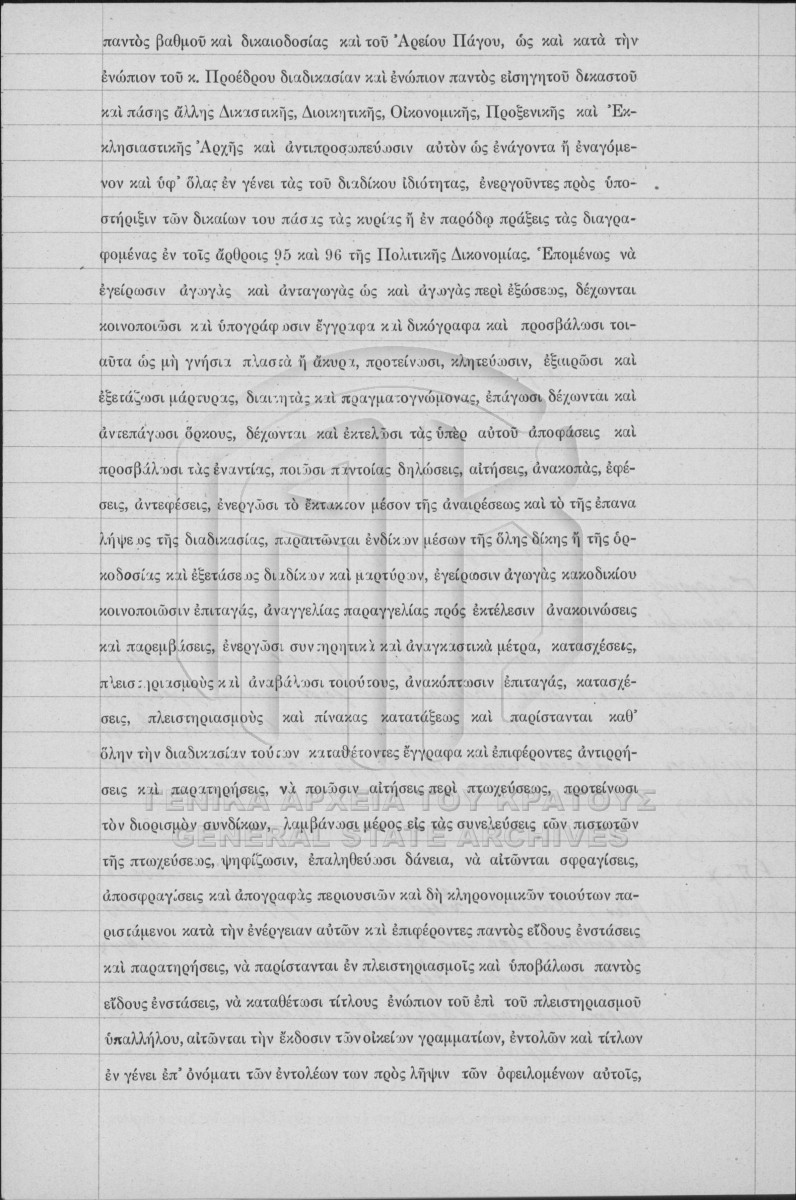 παντὸς βαθμοῦ καὶ δικαιοδοσίας καὶ τοῦ Ἀρείου Πάγου, ὡς καὶ κατὰ τὴν
ἐνώπιον τοῦ κ. Προέδρου διαδικασίαν καὶ ἐνώπιον παντὸς εἰσηγητοῦ δικαστοῦ
καὶ πάσης ἄλλης Δικαστικῆς, Διοικητικῆς, Οἰκονομικῆς, Προξενικῆς καὶ Ἐκ-
κλησιαστικῆς Ἀρχῆς καὶ ἀντιπροσωπεύωσιν αὐτὸν ὡς ἐνάγοντα ἢ ἐναγόμε-
νον καὶ ὑφ᾽ ὅλας ἐν γένει τὰς τοῦ διαδίκου ἰδιότητας, ἐνεργοῦντες πρὸς ὑπο-
στήριξιν τῶν δικαίων του πάσας τὰς κυρίας ἢ ἐν παρόδῳ πράξεις τὰς διαγρα-
φομένας ἐν τοῖς ἄρθροις 95 καὶ 96 τῆς Πολιτικῆς Δικονομίας. Ἑπομένως νὰ
ἐγείρωσιν ἀγωγὰς καὶ ἀνταγωγὰς ὡς καὶ ἀγωγὰς περὶ ἐξώσεως, δέχωνται
κοινοποιῶσι καὶ ὑπογράφωσιν ἔγγραφα καὶ δικόγραφα καὶ προσβάλωσι τοι-
αῦτα ὡς μὴ γνήσια πλαστὰ ἢ ἄκυρα, προτείνωσι, κλητεύωσιν, ἐξαιρῶσι καὶ
ἐξετάζωσι μάρτυρας, διαιτητὰς καὶ πραγματογνώμονας, ἐπάγωσι δέχωνται καὶ
ἀντεπάγωσι ὅρκους, δέχωνται καὶ ἐκτελῶσι τὰς ὑπὲρ αὐτοῦ ἀποφάσεις καὶ
προσβάλωσι τὰς ἐναντίας, ποιῶσι παντοίας δηλώσεις, αἰτήσεις, ἀνακοπὰς, ἐφέ-
σεις, ἀντεφέσεις, ἐνεργῶσι τὸ ἔκτακτον μέσον τῆς ἀναιρέσεως καὶ τὸ τῆς ἐπανα
λήψεως τῆς διαδικασίας, παραιτῶνται ἐνδίκων μέσων τῆς ὅλης δίκης ἢ τῆς ὁρ-
κοδοσίας καὶ ἐξετάσεως διαδίκων καὶ μαρτύρων, ἐγείρωσιν ἀγωγὰς κακοδικίου
κοινοποιῶσιν ἐπιταγάς, ἀναγγελίας παραγγελίας πρός ἐκτέλεσιν ἀνακοινώσεις
καὶ παρεμβάσεις, ἐνεργῶσι συντηρητικὰ καὶ ἀναγκαστικὰ μέτρα, κατασχέσεις,
πλειστηριασμοὺς καὶ ἀναβάλωσι τοιούτους, ἀνακόπτωσιν ἐπιταγάς, κατασχέ-
σεις, πλειστηριασμοὺς καὶ πίνακας κατατάξεως καὶ παρίστανται καθ᾽
ὅλην τὴν διαδικασίαν τούτων καταθέτοντες ἔγγραφα καὶ ἐπιφέροντες ἀντιρρή-
σεις καὶ παρατηρήσεις, νὰ ποιῶσιν αἰτήσεις περὶ πτωχεύσεως, προτείνωσι
ΓΕΝΙΚΑ ΑΡΧΕΙΑ ΤΟΥ ΚΡΑΤΟΥΣ
τὸν διορισμὸν συνδίκων, λαμβάνωσι μέρος εἰς τὰς συνελεύσεις τῶν πιστωτῶν
GENERAL STATE ARCHIVES
τῆς πτωχεύσεως, ψηφίζωσιν, ἐπαληθεύωσι δάνεια, νὰ αἰτῶνται σφραγίσεις,
ἀποσφραγίσεις καὶ ἀπογραφὰς περιουσιῶν καὶ δὴ κληρονομικῶν τοιούτων πα-
ριστάμενοι κατὰ τὴν ἐνέργειαν αὐτῶν καὶ ἐπιφέροντες παντὸς εἴδους ἐνστάσεις
καὶ παρατηρήσεις, νὰ παρίστανται ἐν πλειστηριασμοῖς καὶ ὑποβάλωσι παντὸς
εἴδους ἐνστάσεις, νὰ καταθέτωσι τίτλους ἐνώπιον τοῦ ἐπὶ τοῦ πλειστηριασμοῦ
ὑπαλλήλου, αἰτῶνται τὴν ἔκδοσιν τῶν οἰκείων γραμματίων, ἐντολῶν καὶ τίτλων
ἐν γένει ἐπ᾽ ὀνόματι τῶν ἐντολέων των πρὸς λῆψιν τῶν ὀφειλομένων αὐτοῖς,